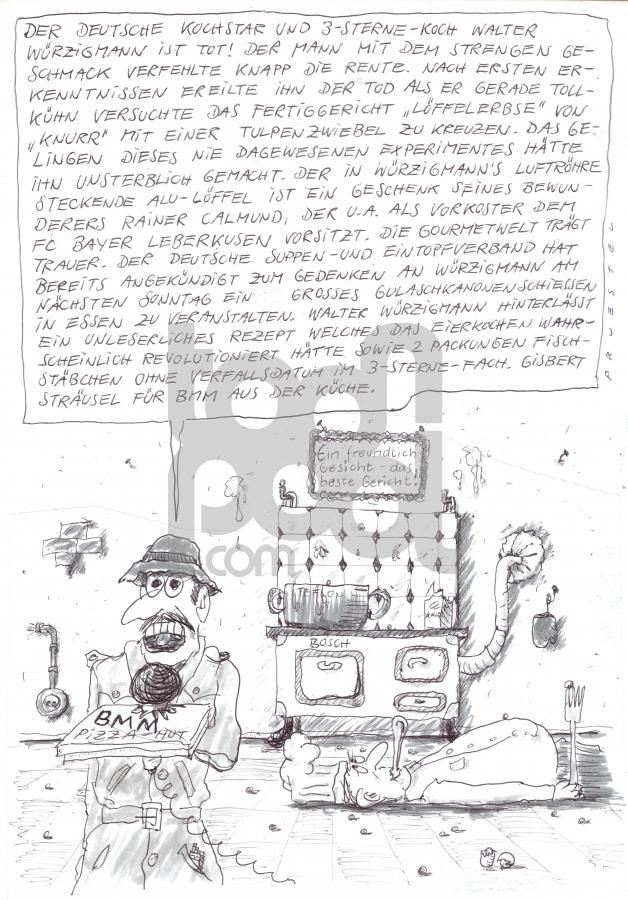 DER DEUTSCHE KOCHSTAR UND 3-STERNE-KOCH WALTER
WÜRZIGMANN IST TOT! DER MANN MIT DEM STRENGEN GE-
SCHMACK VERFEHLTE KNAPP DIE RENTE. NACH ERSTEN ER-
KENNTNISSEN EREILTE IHN DER TOD ALS ER GERADE TOLL-
KÜHN VERSUCHTE DAS FERTIGGERICHT „LÖFFELERBSE" VON
„KNURR" MIT EINER TULPENZWIEBEL ZU KREUZEN. DAS GE-
LINGEN DIESES NIE DAGEWESENEN EXPERIMENTES HÄTTE
IHN UNSTERBLICH GEMACHT. DER IN WÜRZIGMANN'S LUFTRÖHRE
STECKENDE ALU-LÖFFEL IST EIN GESCHENK SEINES BEWUN-
DERERS RAINER CALMUND, DER U.A. ALS VORKOSTER DEM
FC BAYER LEBERKUSEN VORSITZT. DIE GOURMETWELT TRÄGT
TRAUER. DER DEUTSCHE SUPPEN-UND EINTOPFVERBAND HAT
BEREITS ANGEKÜNDIGT ZUM GEDENKEN AN WÜRZIGMANN AM
NÄCHSTEN SONNTAG EIN GROSSES GULASCHKANONENSCHIESSEN
IN ESSEN ZU VERANSTALTEN. WALTER WÜRZIGMANN HINTERLÄSST
EIN UNLESERLICHES REZEPT WELCHES DAS EIERKOCHEN WAHR-
SCHEINLICH REVOLUTIONIERT HÄTTE SOWIE 2 PACKUNGEN FISCH-
STÄBCHEN OHNE VERFALLSDATUM IM 3-STERNE-FACH. GISBERT
STRÄUSEL FÜR BMM AUS DER KÜCHE.
Ein freundlich
Gesicht - das
beste Gericht
TEFLON
BOSCH
BMM
PIZZA HUT
toonpool
.com